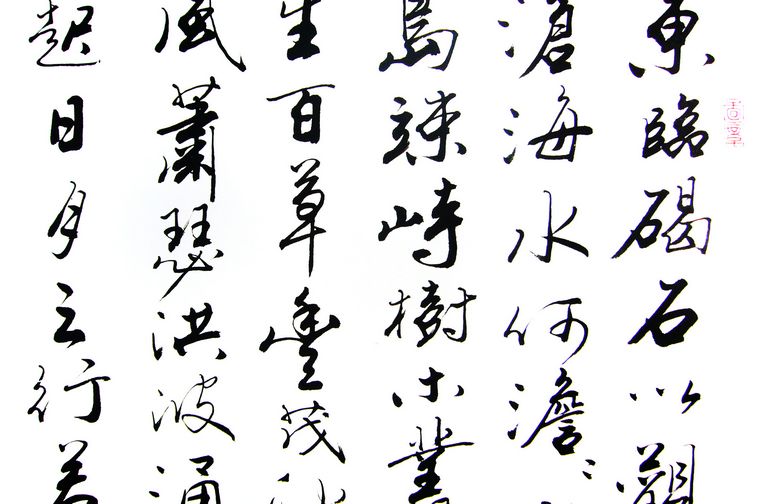 東臨碣石以觀
滄海水何澹
島竦峙樹木叢
生百草豐茂秋
風蕭瑟洪波涌
起日月之行若